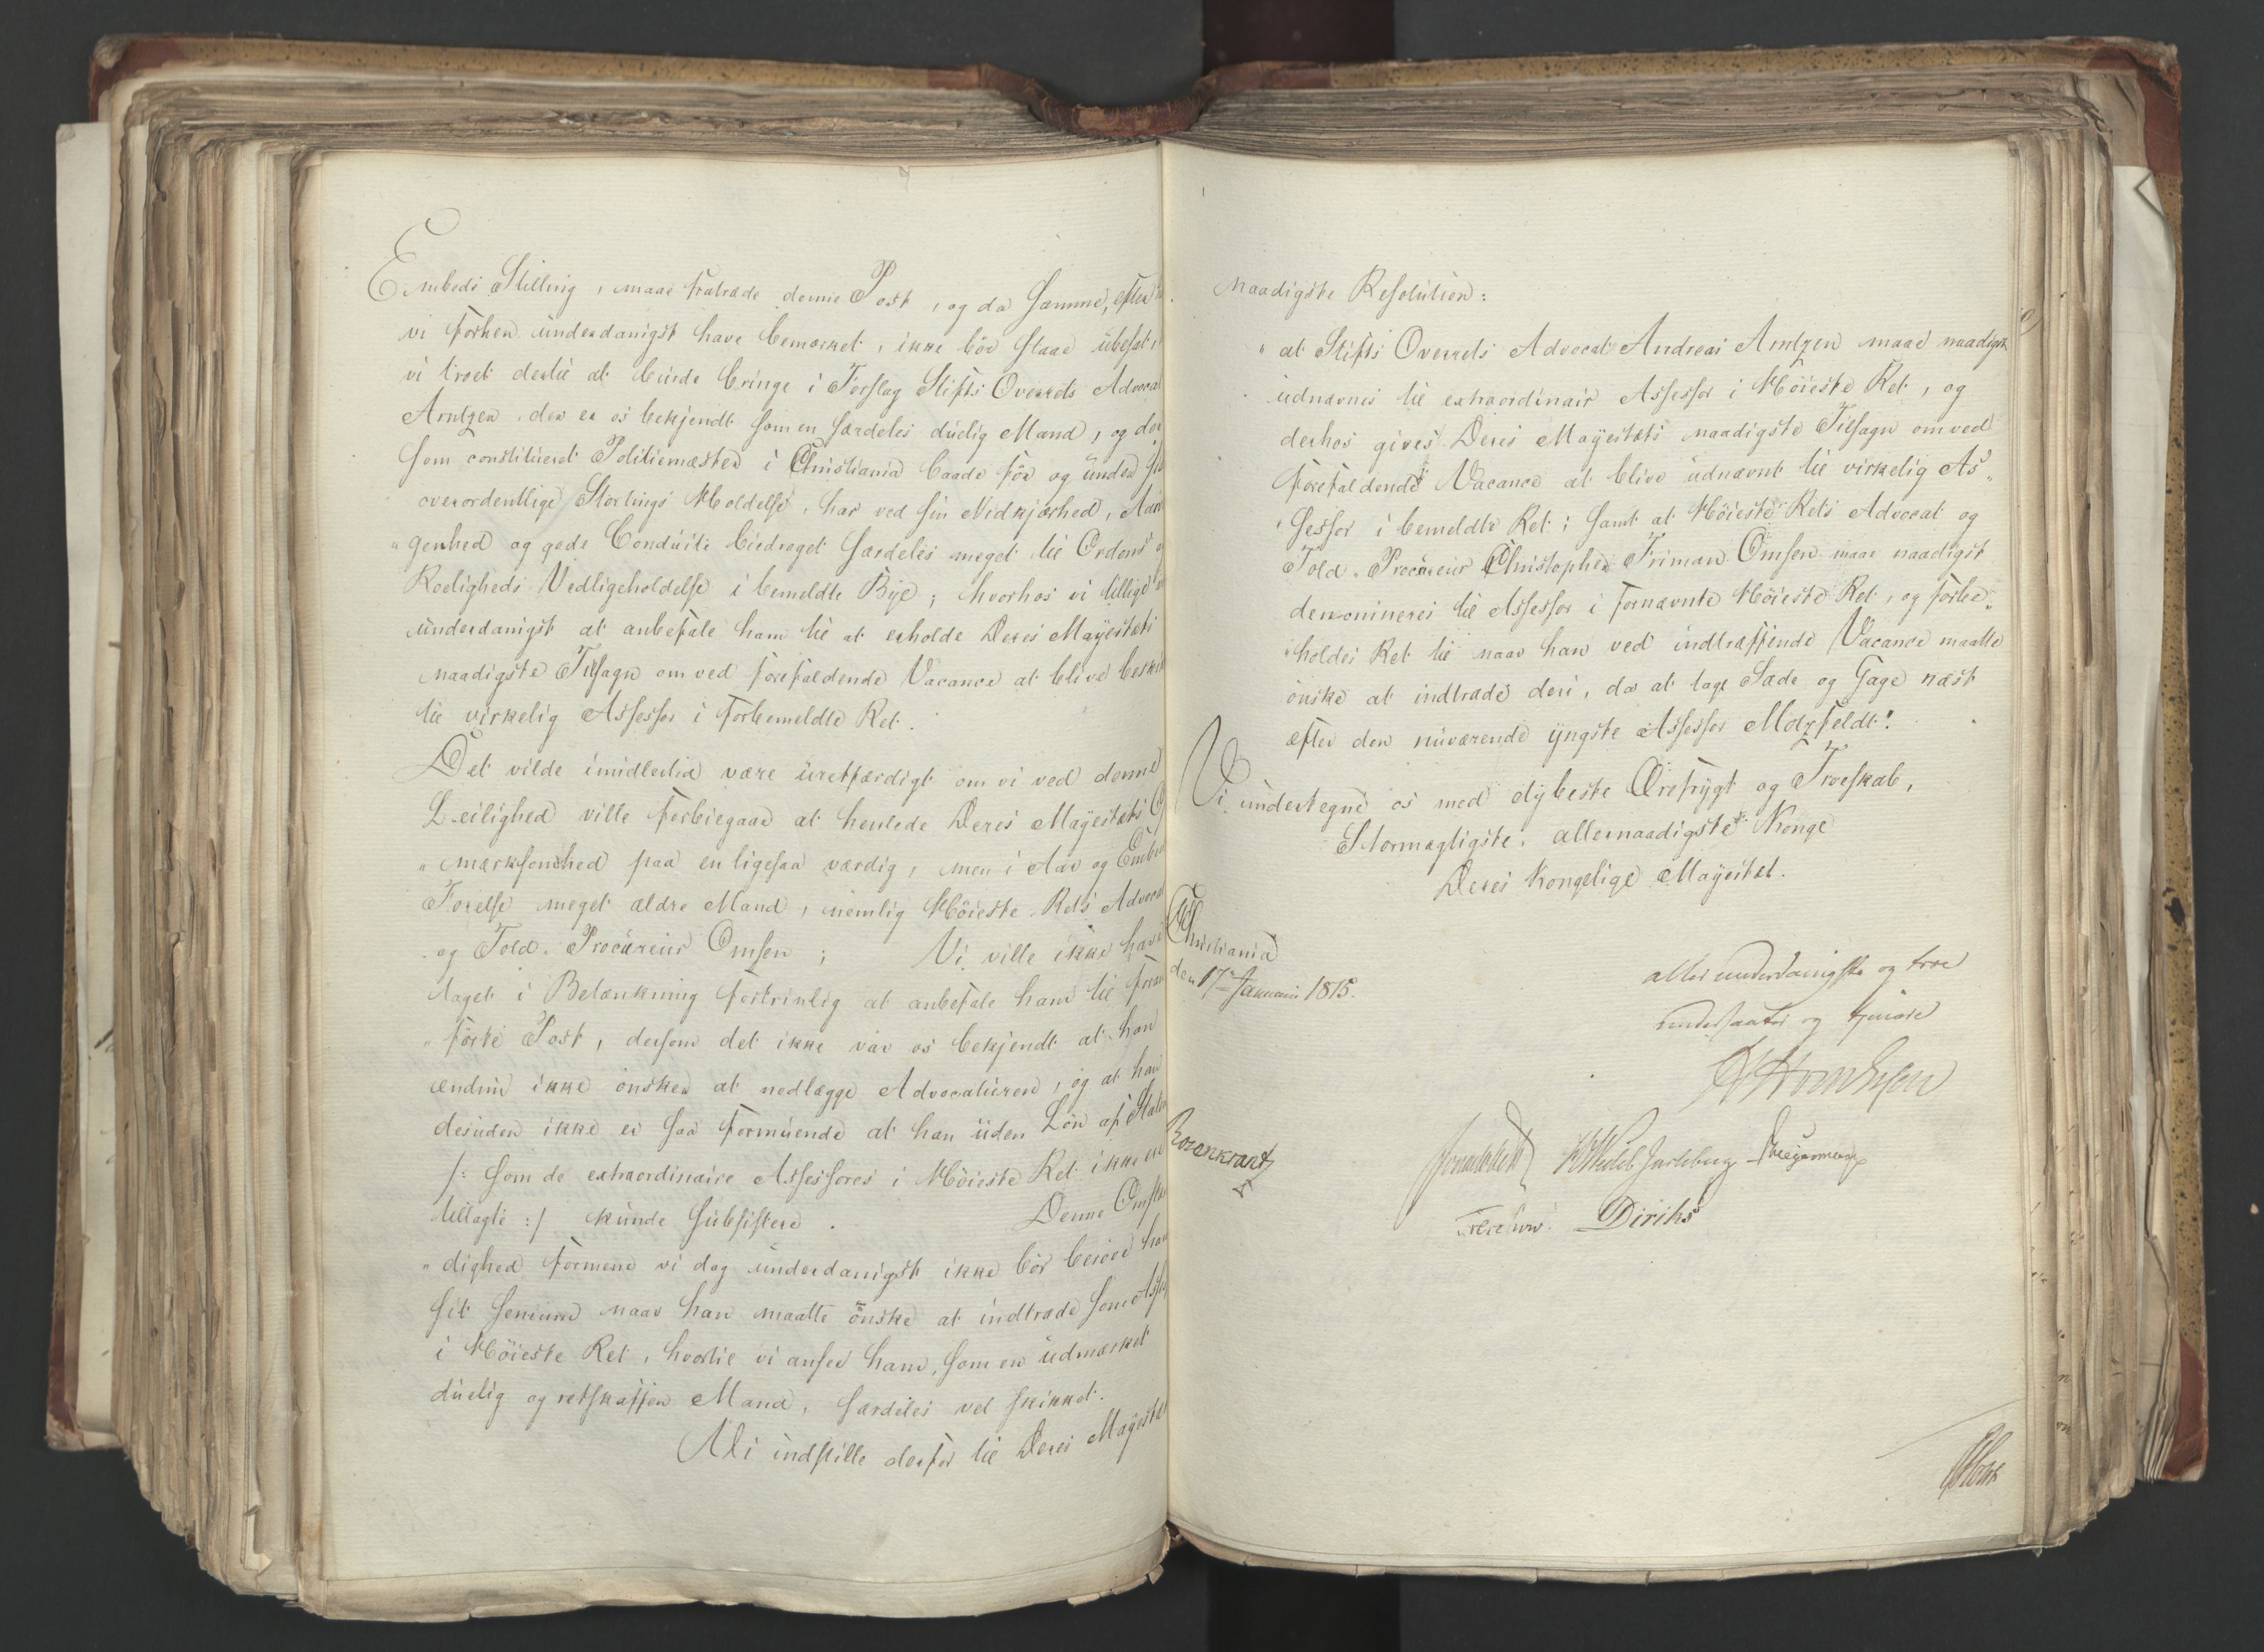 Embeds Stilling, maae fratræde denne Post, og da samme, efter
vi forhen underdanigst have bemærket, ikke bör staae übesat,
vi troet dertil at burde bringe i Forslag Stifts Overrets Advocat
Arntzen, der er os bekjendt som en særdeles duelig Mand, og der
som constitueret Politiemæster i Christiania baade för og under
overordentlige Storthings Holdelse, har ved sin Nidkjærhed,
„genhed og gode Conduite bidraget særdeles meget til Ordens
Roeligheds Vedligeholdelse i bemeldte Bye; hvorhos vi tillige
underdanigst at anbefale ham til at erholde Deres Mayestæts
naadigste Tilsagn om ved forefaldende Vacance at blive beskik
til virkelig Assessor i forbemeldte Ret.
Det vilde imidlertid være üretfærdigt om vi ved denne
Leilighed ville forbiegaae at henlede Deres Mayestæts O
„mærksomhed paa en ligesaa værdig, men i Aar og Embeds
Förelse meget ældre Mand, nemlig Höieste Rets Advocat
og Told-Procureur Omsen; Vi ville ikke have
taget i Betænkning fortrinlig at anbefale ham til
„förte Post, dersom det ikke var os bekjendt at han
endnu ikke önsker at nedlægge Advocaturen, og at han
desuden ikke er saa formuende at han uden Lön af Staten
/: som de extraordinaire Assessorer i Höieste Ret ikke ere
tillagte :/ kunde subsistere. Denne Omstæn
„dighed formene vi dog underdanigst ikke bör beröve ham
sit Senium naar han maatte önske at indtræde som Assess
i Höieste Ret, hvortil vi anser ham, som en udmærket
duelig og retskaffen Mand, særdeles vel skikket.
Vi indstille derfor til Deres Mayestæts
naadigste Resolution:
„at Stifts Overrets Advocat Andreas Arntzen maae naadigst
udnævnes til extraordinair Assessor i Höieste Ret, og
derhos gives Deres Mayestæts naadigste Tilsagn om ved
forefaldende Vacance at blive udnævnt til virkelig As„
„sessor i bemeldte Ret; samt at Höieste Rets Advocat og
Told-Procureur Christopher Friman Omsen maae naadigst
denomineres til Assessor i fornævnte Höieste Ret, og forbe„
„holdes Ret til naar han ved indtræffende Vacance maatte
önske at indtræde deri, da at tage Sæde og Gage næst
efter den nuværende yngste Assessor Motzfeldt".
Vi undertegne os med dybeste Ærefrygt og Troeskab,
Stormægtigste, allernaadigste Konge
Deres Kongelige Mayestæt.
Christiania
den 17de Januarii 1815.
allerunderdanigste og troe
undersaatter og tjenere
Rosenkrantz
Sommerhielm HWedel Jarlsberg Krieger
Treschow Diriks